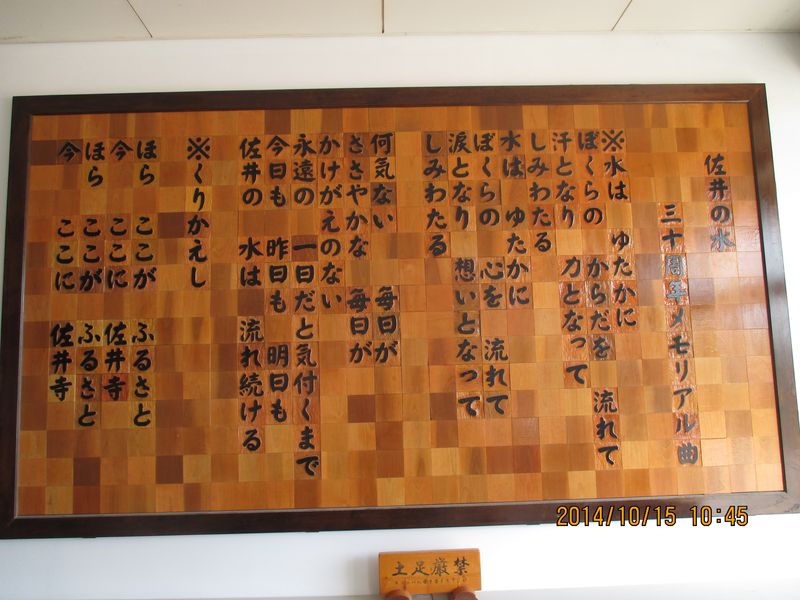 佐井の水
三十周年メモリアル曲
※水は ゆたかに
ぼくらの からだを 流れて
汗となり 力となって
しみわたる
水は ゆたかに
ぼくらの 心を 流れて
涙となり 想いとなって
しみわたる
何気ない 毎日が
ささやかな 毎日が
かけがえのない
永遠の 一日だと気付くまで
今日も 昨日も 明日も
佐井の 水は 流れ続ける
※くりかえし
ほら ここが ふるさと
今 ここに 佐井寺
ほら ここが ふるさと
今 ここに 佐井寺
土足厳禁
2014/10/15 10:45